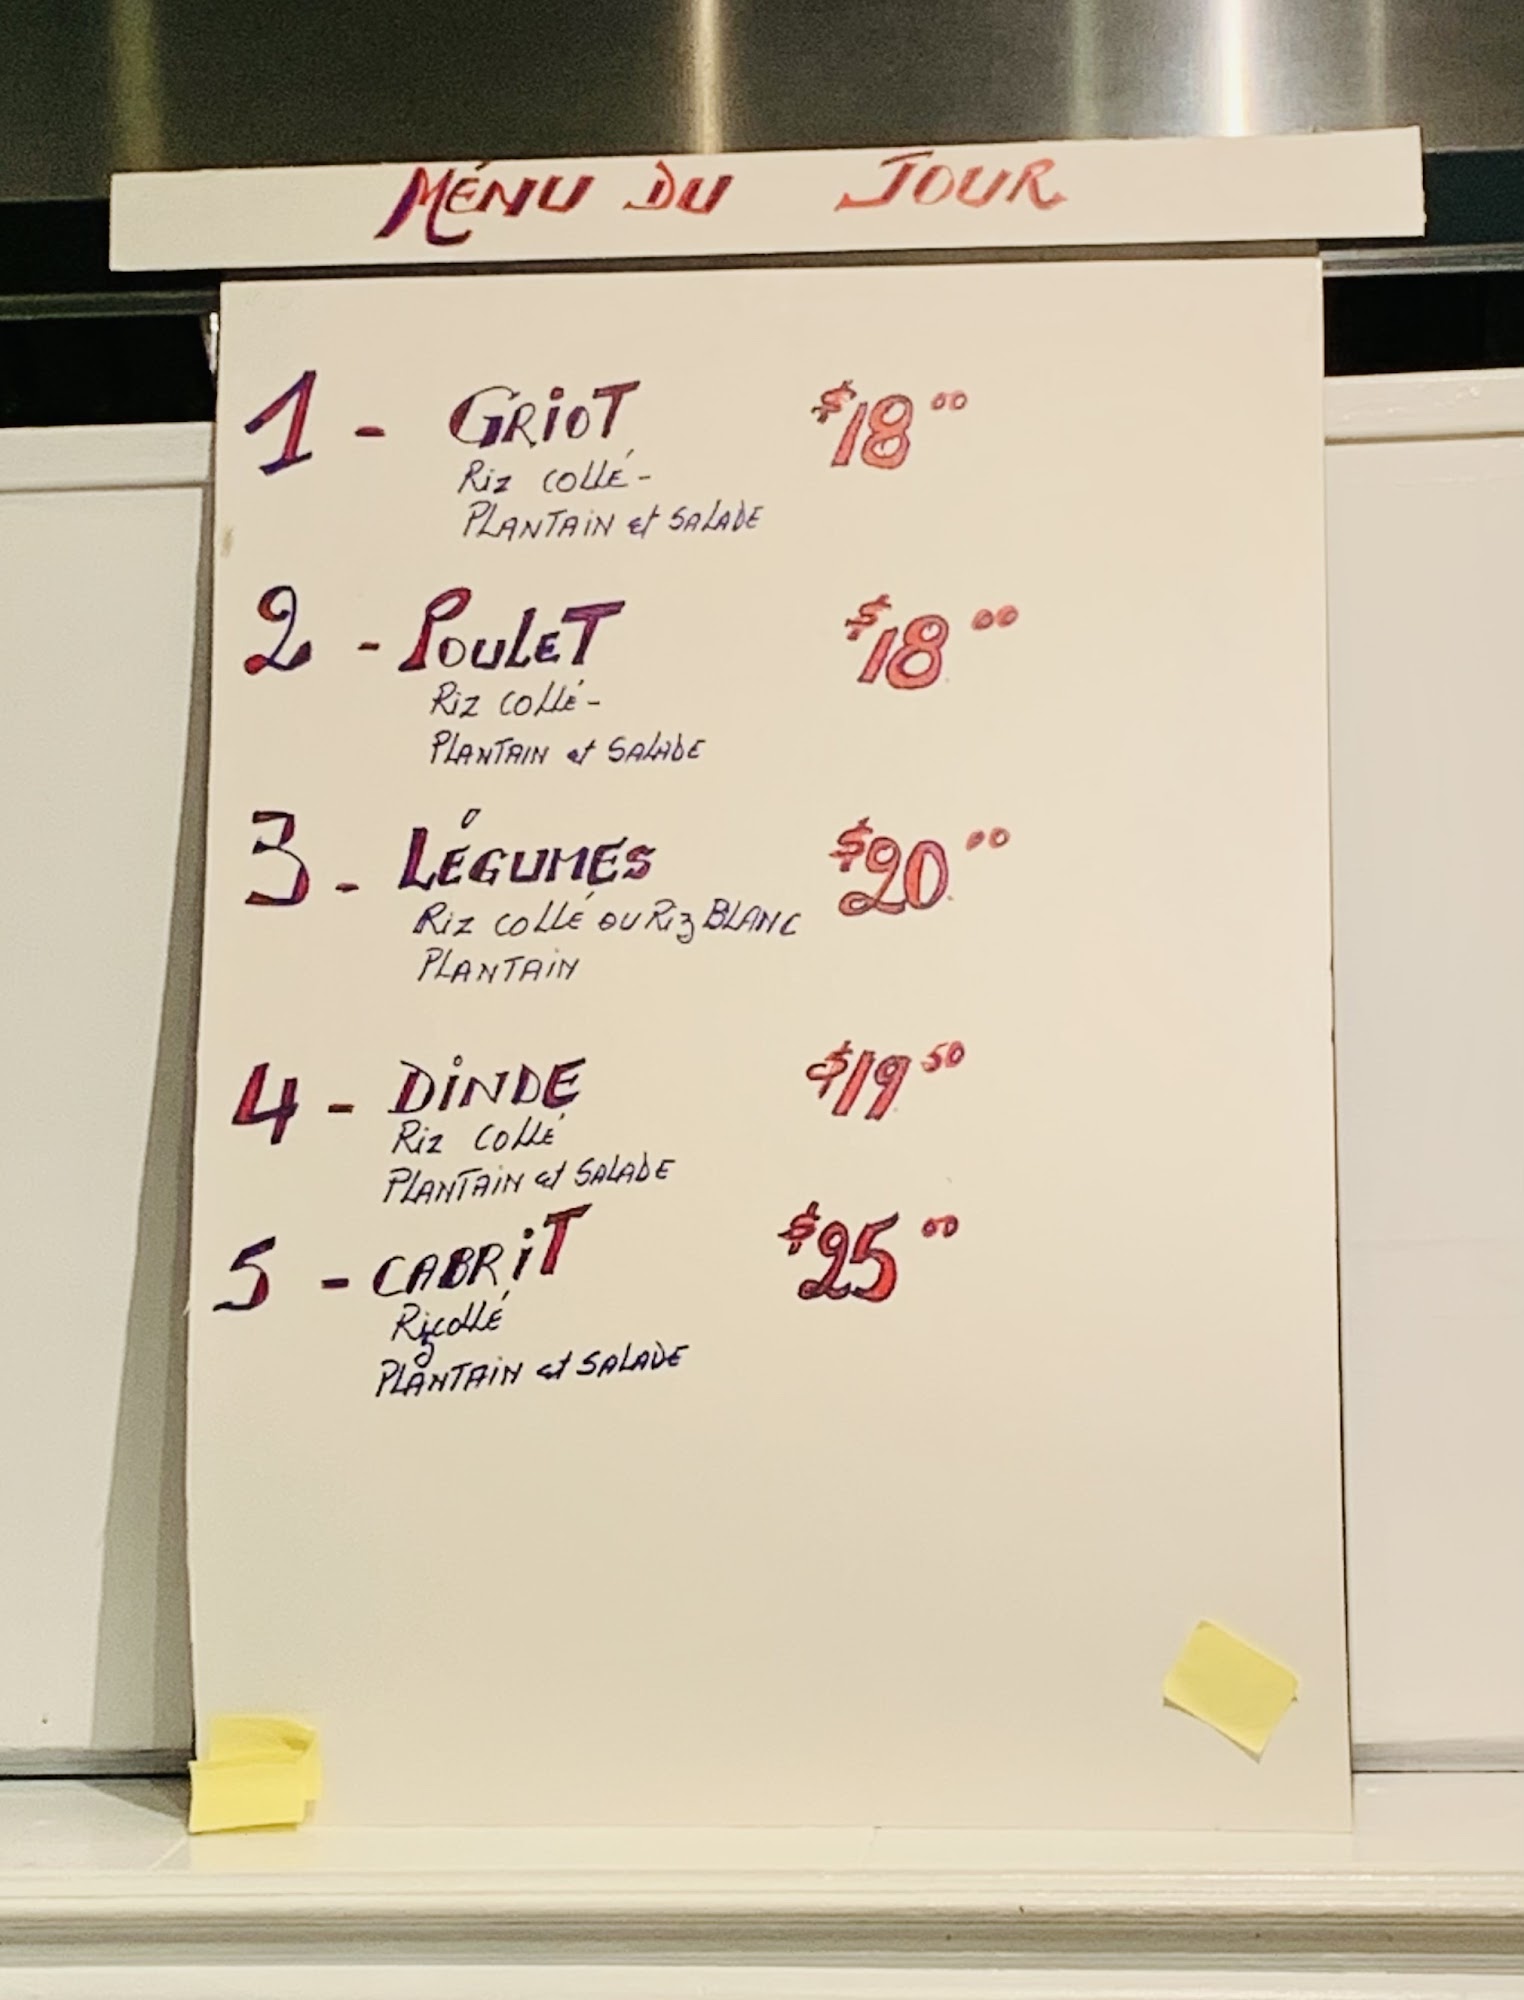 MÉNU DU JOUR
1 - GRIOT $18.00
RIZ COLLÉ -
PLANTAIN et SALADE
2 - POULET $18.00
RIZ COLLÉ -
PLANTAIN et SALADE
3 - LÉGUMES $20.00
RIZ COLLÉ OU RIZ BLANC
PLANTAIN
4 - DINDE $19.50
RIZ COLLÉ
PLANTAIN et SALADE
5 - CABRIT $25.00
RIZCOLLÉ
PLANTAIN et SALADE